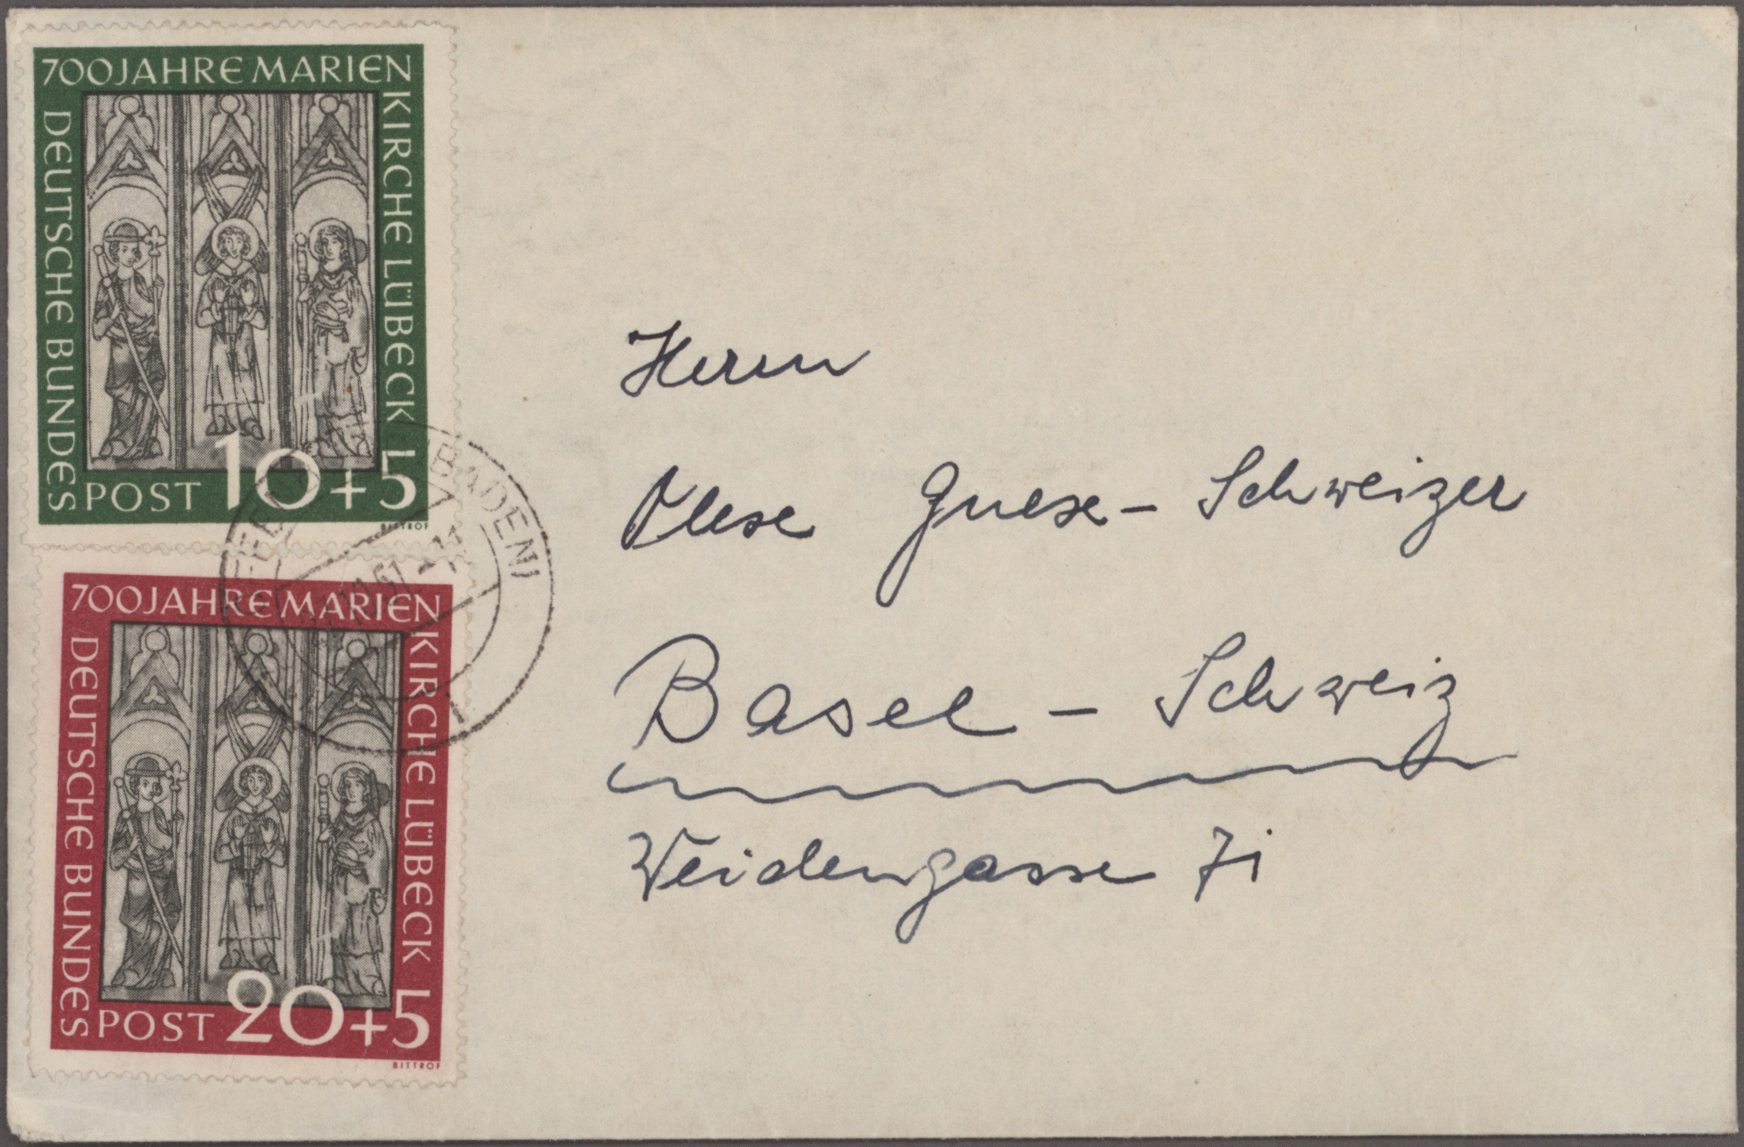 700 JAHRE MARIEN
KIRCHE LÜBECK
DEUTSCHE BUNDES
POST 10+5
BITTROF
(BADEN)
700 JAHRE MARIEN
KIRCHE LÜBECK
DEUTSCHE BUNDES
POST 20+5
BITTROF
Herrn
Schweizer
Basel - Schweiz
Weidengasse 71